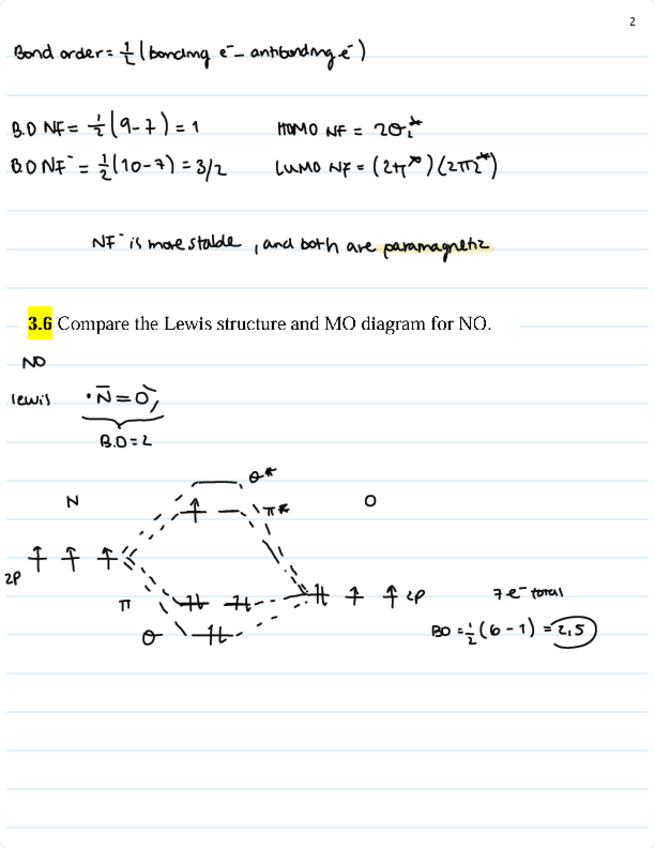 2
Bond order = 1/2 (bonding e⁻ - antibonding e⁻)
B.O NF = 1/2 (9-7) = 1 HOMO NF = 2σ*
BO NF⁻ = 1/2 (10-7) = 3/2 LUMO NF = (2π*)(2π*)
NF⁻ is more stable, and both are paramagnetic
3.6 Compare the Lewis structure and MO diagram for NO.
NO
lewis ·N=O
B.O = 2
σ*
N π* O
2p
π 2p 7 e⁻ total
σ BO = 1/2 (6-1) = 2,5